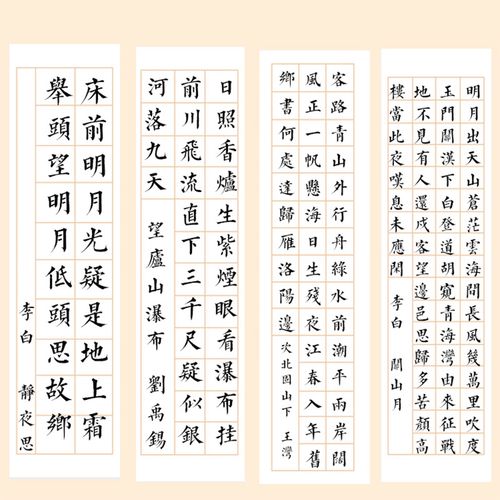 床前明月光疑是地上霜
舉頭望明月低頭思故鄉
李白 靜夜思
日照香爐生紫煙眼看瀑布挂
前川飛流直下三千尺疑似銀
河落九天 望廬山瀑布 劉禹錫
客路青山外行舟綠水前潮平兩岸闊
風正一帆懸海日生殘夜江春入年舊
鄉書何處達歸雁洛陽邊 次北固山下 王灣
明月出天山蒼茫雲海間長風幾萬里吹度
玉門關漢下白登道胡窺青海灣由來征戰
地不見有人還戍客望邊邑思歸多苦顏高
樓當此夜嘆息未應閑 李白 關山月